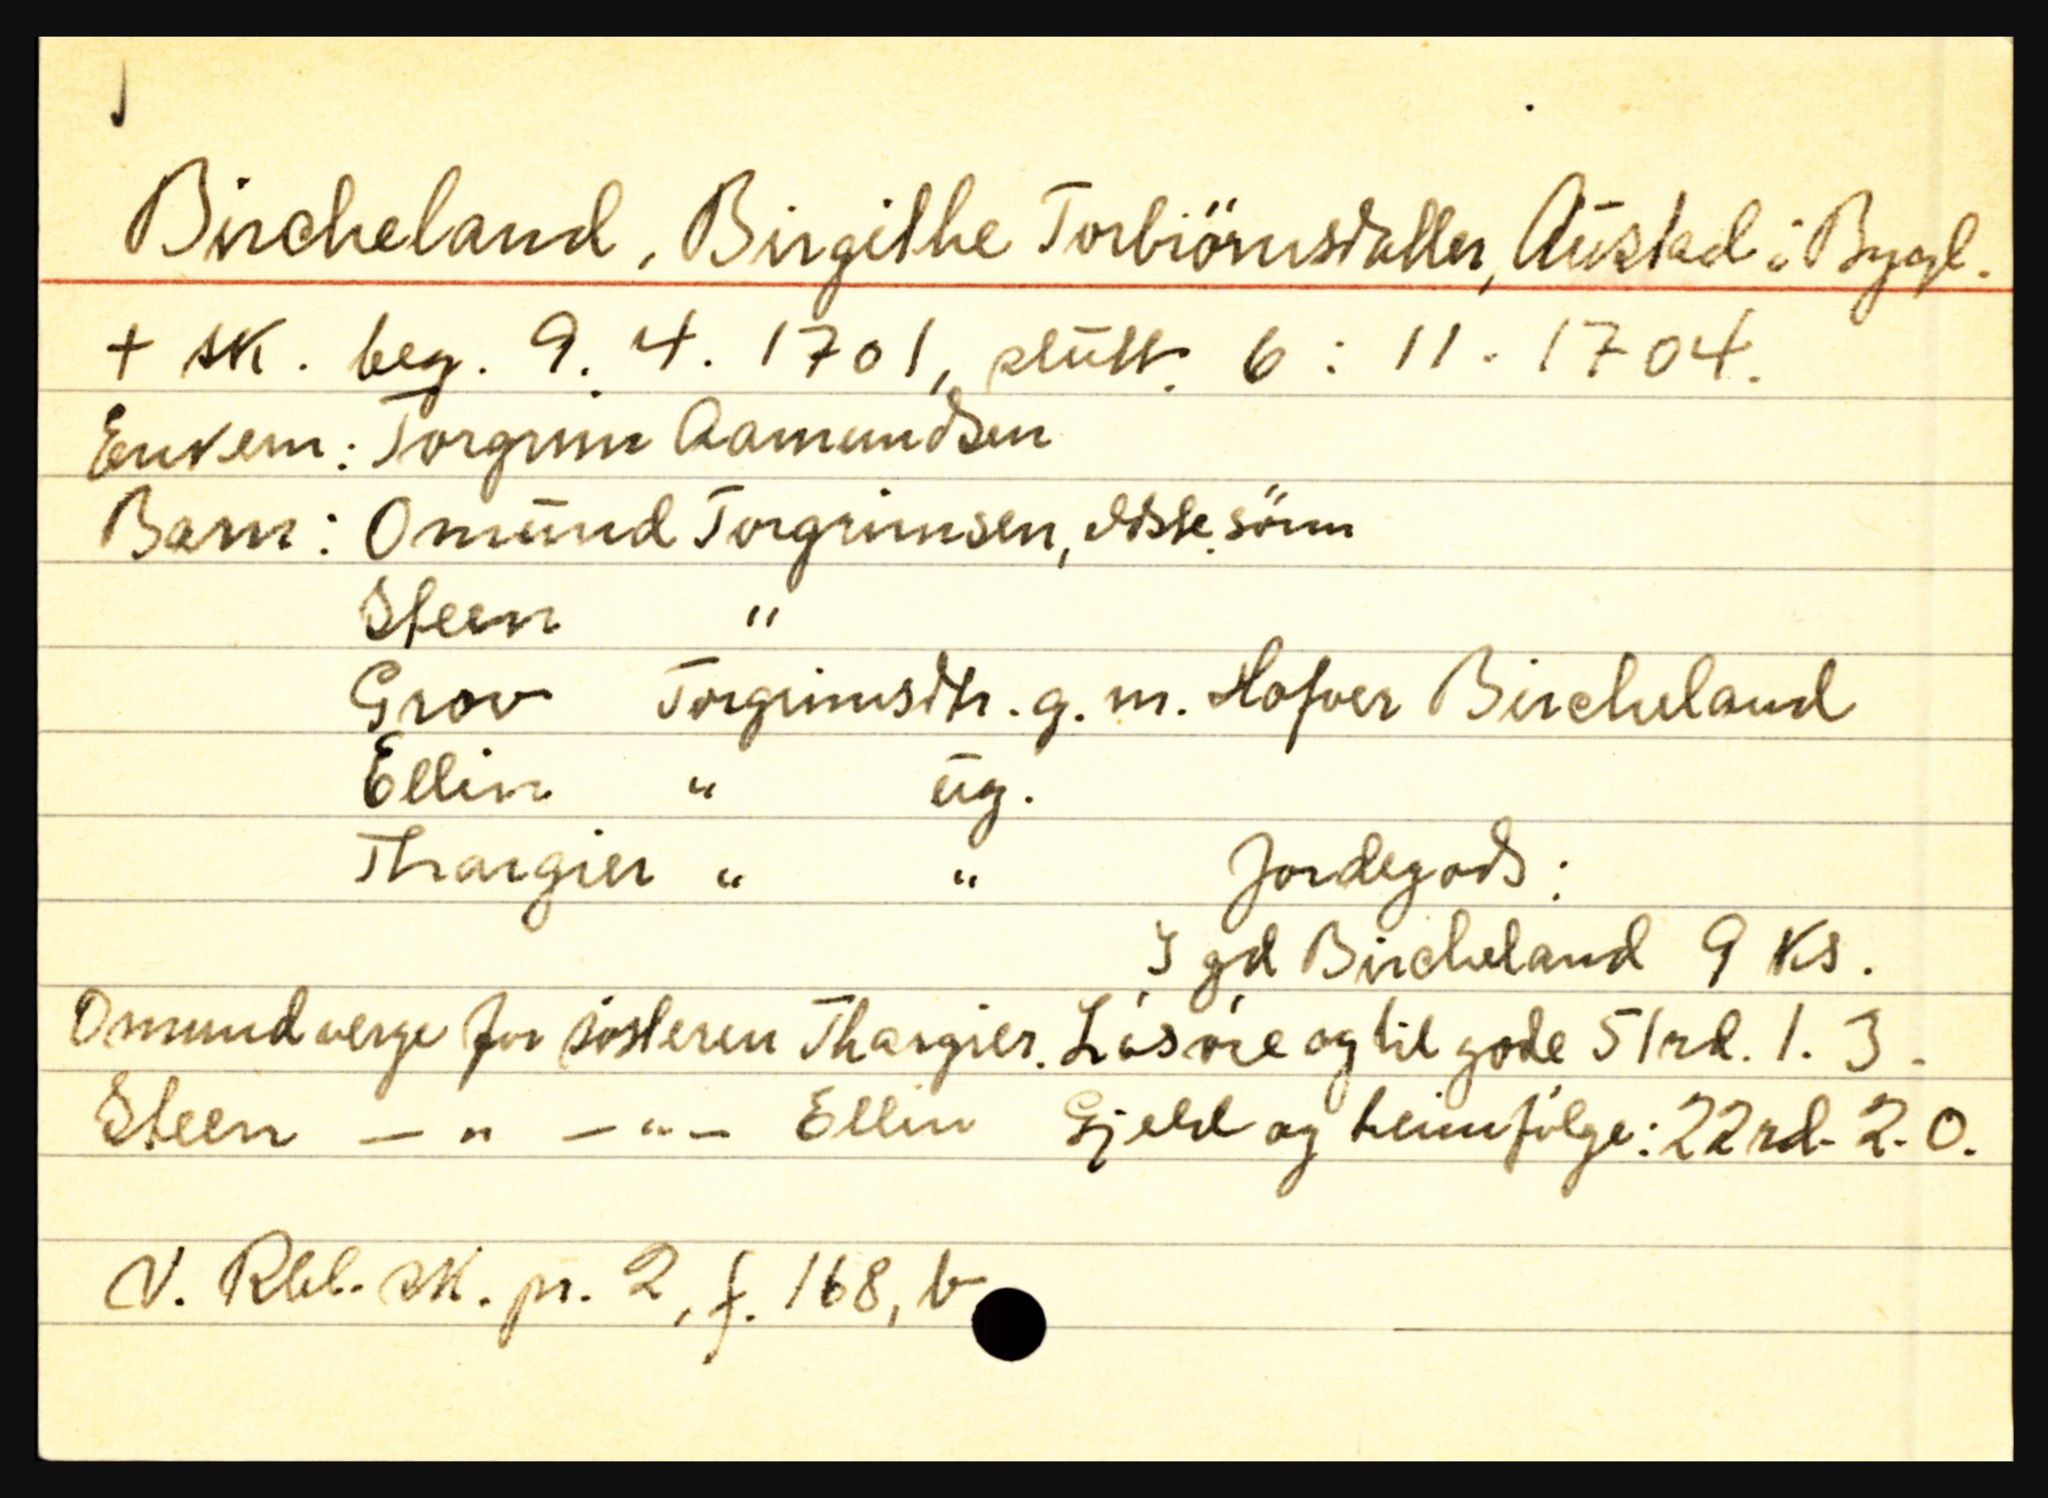 Bircheland, Birgithe Torbiörnsdatter, Austad i Bygl.
+ sk. beg. 9. 4. 1701, slutt. 6: 11. 1704.
Enkem: Torgrim Aamundsen
Barn: Omund Torgrimsen, eldste sönn
Steen "
Grov Torgrimsdtr. g. m. Hofver Bircheland
Ellin " ug.
Thargier " " Jordegods:
I gd Bircheland 9 ks.
Omund verge for søsteren Thargier. Løsøre og til gode 51 rd. 1. 3.
Steen — " — " — Ellin Gjeld og heimfølge: 22 rd. 2. 0.
N. Rbl. sk. pr. 2, f. 168, b